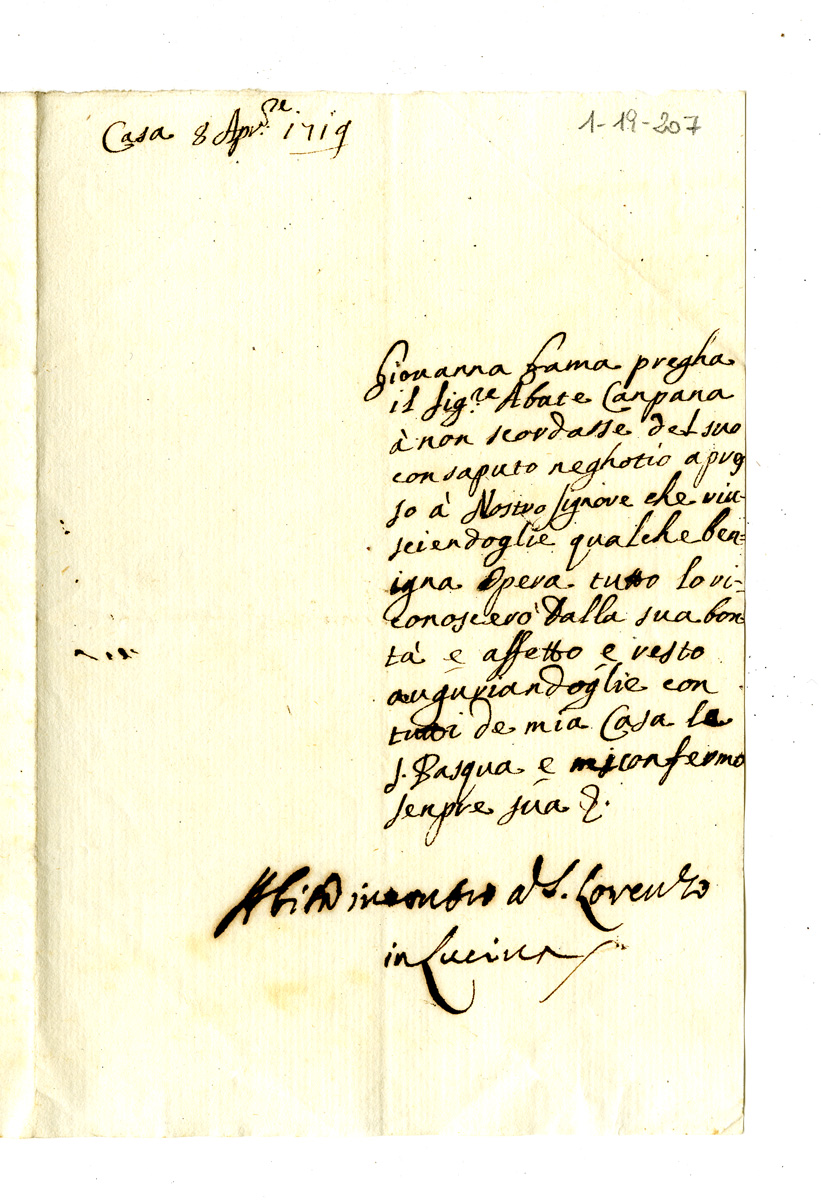 Casa 8 Apr.le 1719
1-19-207
Giovanna Fama pregha
il Sig.re Abate Canpana
à non scordasse del suo
consaputo neghotio apres
so a' Nostro Signore che riu-
sciendoglie qualche ben=
igna Opera tutto lo ri=
conoscerò dalla sua bon
tà e affetto e resto
auguriandoglie con
tutti de mia Casa le
S. Pasqua e mi confermo
senpre sua
Abita incontro a S. Lorenzo
in Lucina